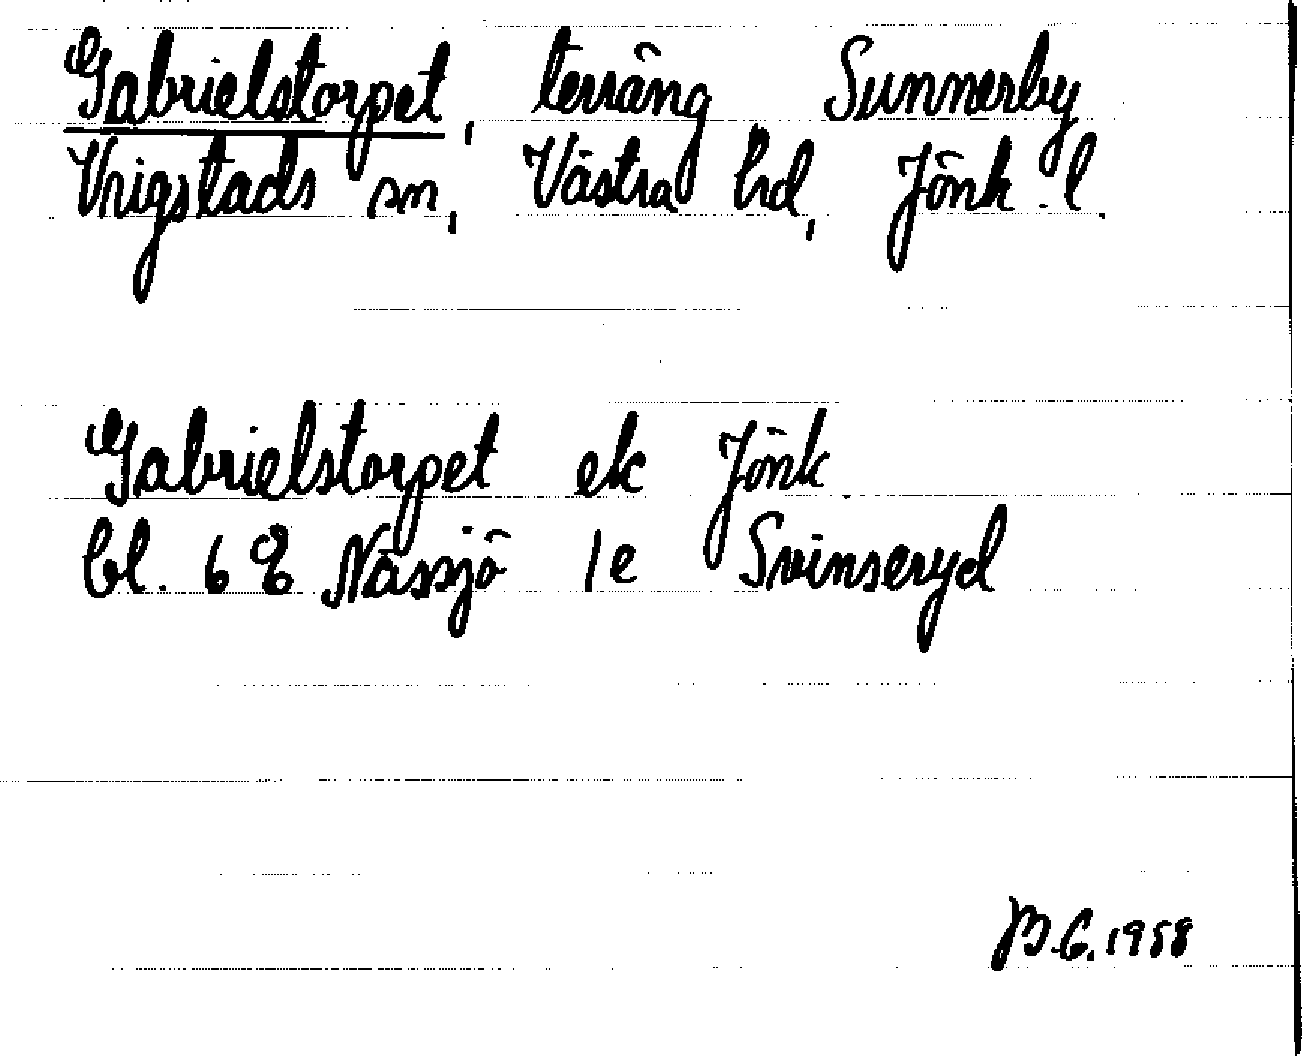 Gabrielstorpet, terräng Sunnerby
Vrigstads sn, Västra hd, Jönk. l.
Gabrielstorpet ek Jönk
bl. 6 E Nässjö 1e Svinseryd
B.G. 1958